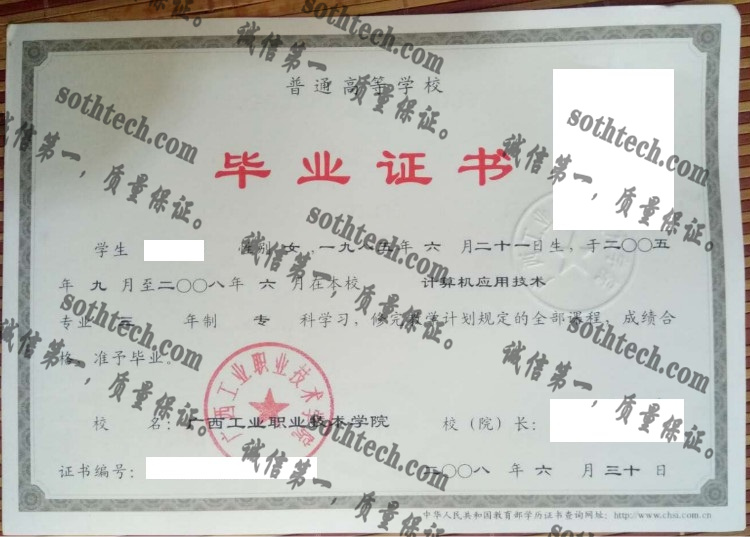 普通高等学校
毕业证书
学生 性别 女 一九八五年 六 月二十一日生，于二〇〇五
年 九 月至二〇〇八年 六 月在本校 计算机应用技术
专业 三 年制 专 科学习，修完教学计划规定的全部课程，成绩合
格，准予毕业。
校 名：广西工业职业技术学院 校（院）长：
证书编号： 二〇〇八 年 六 月 三十 日
中华人民共和国教育部学历证书查询网址：http://www.chsi.com.cn
广西工业职业技术学院
sothtech.com
诚信第一，质量保证。
sothtech.com
诚信第一，质量保证。
sothtech.com
诚信第一，质量保证。
sothtech.com
诚信第一，质量保证。
sothtech.com
诚信第一，质量保证。
sothtech.com
诚信第一，质量保证。
sothtech.com
诚信第一，质量保证。